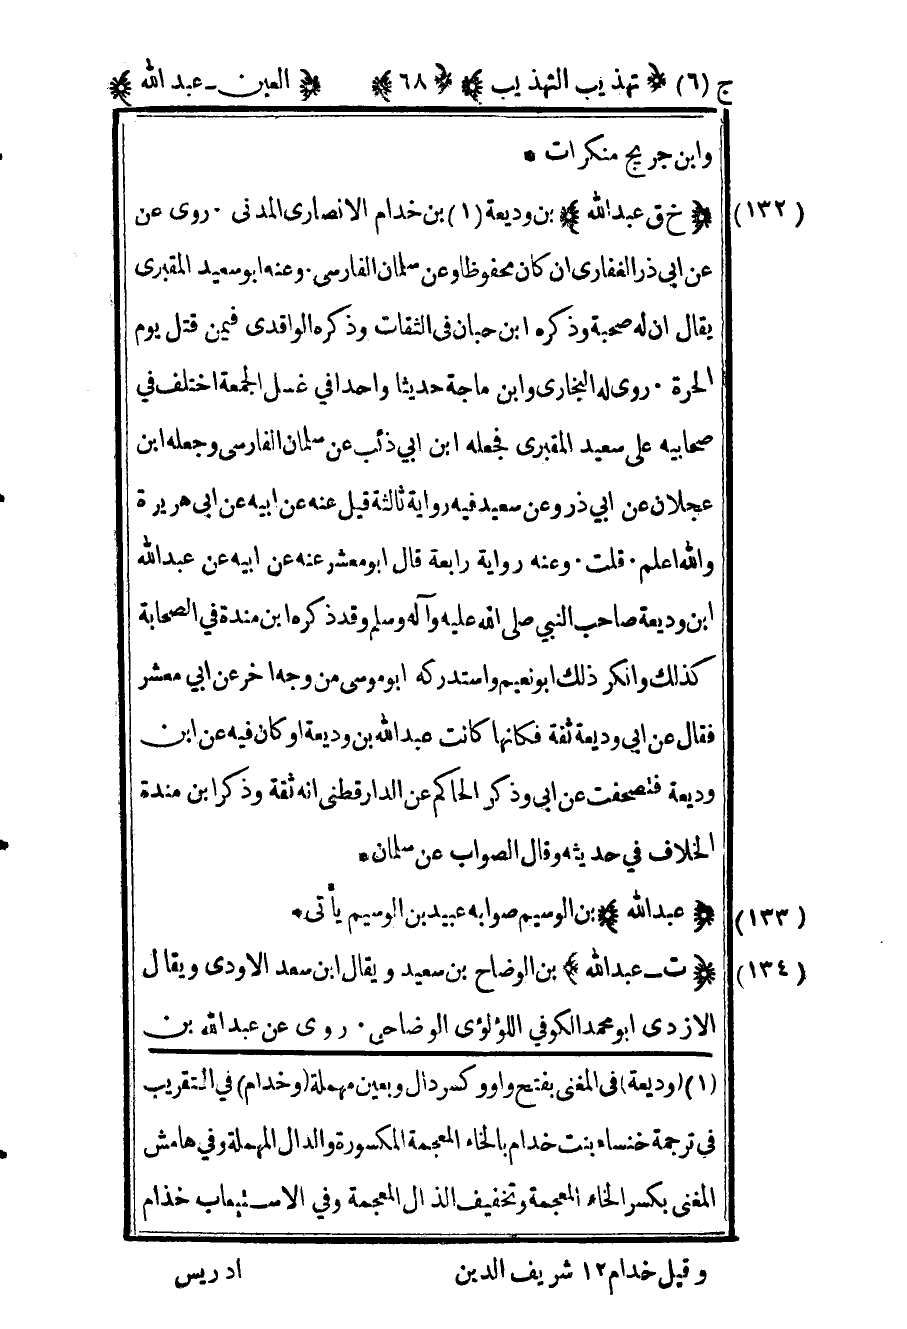 ج (٦) ﴿ تهذيب التهذيب ﴾ ﴿ ٦٨ ﴾ ﴿ العين ـ عبد الله ﴾
وابن جريج منكرات *
(١٣٢) ﴿ خ ق عبدالله ﴾ بن وديعة (١) بن خدام الانصارى المدنى ٠ روى عن
عن ابي ذر الغفارى ان كان محفوظا وعن سلمان الفارسى ٠ وعنه ابو سعيد المقبرى
يقال ان له صحبة وذكره ابن حبان فى الثقات وذكره الواقدى فيمن قتل يوم
الحرة ٠ روى له البخارى وابن ماجة حديثا واحدا في غسل الجمعة اختلف في
صحابيه على سعيد المقبرى فجعله ابن ابي ذئب عن سلمان الفارسى وجعله ابن
عجلان عن ابي ذر وعن سعيد فيه رواية ثالثة قيل عنه عن ابيه عن ابى هريرة
والله اعلم ٠ قلت ٠ وعنه رواية رابعة قال ابو معشر عنه عن ابيه عن عبدالله
ابن وديعة صاحب النبي صلى الله عليه وآله وسلم وقد ذكره ابن مندة في الصحابة
كذلك وانكر ذلك ابو نعيم واستدركه ابو موسى من وجه اخر عن ابي معشر
فقال عن ابي وديعة ثقة فكانها كانت عبدالله بن وديعة او كان فيه عن ابن
وديعة فتصحفت عن ابى وذكر الحاكم عن الدارقطنى انه ثقة وذكر ابن مندة
الخلاف في حديثه وقال الصواب عن سلمان *
(١٣٣) ﴿ عبدالله ﴾ بن الوسيم صوابه عبيد بن الوسيم يأتى *
(١٣٤) ﴿ ت ـ عبدالله ﴾ بن الوضاح بن سعيد و يقال ابن سعد الاودى ويقال
الازدى ابو محمد الكوفي اللؤلؤى الوضاحى ٠ روى عن عبدالله بن
(١) (وديعة) فى المغنى بفتح واو وكسر دال وبعين مهملة (وخدام) في التقريب
في ترجمة خنساء بنت خدام بالخاء المعجمة المكسورة والدال المهملة وفي هامش
المغنى بكسر الخاء المعجمة وتخفيف الذال المعجمة وفي الاستيعاب خذام
وقيل خدام ١٢ شريف الدين
ادريس